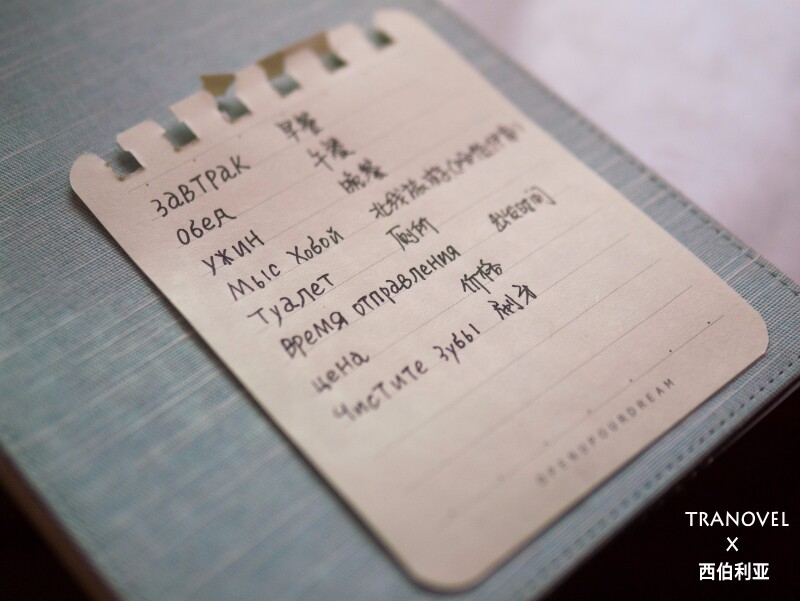 завтрак 早餐
обед 午餐
ужин 晚餐
мыс хобой 北线旅游
туалет 厕所
время отправления 出发时间
цена 价格
чистите зубы 刷牙
OPENUPOURDREAM
TRANOVEL
X
西伯利亚